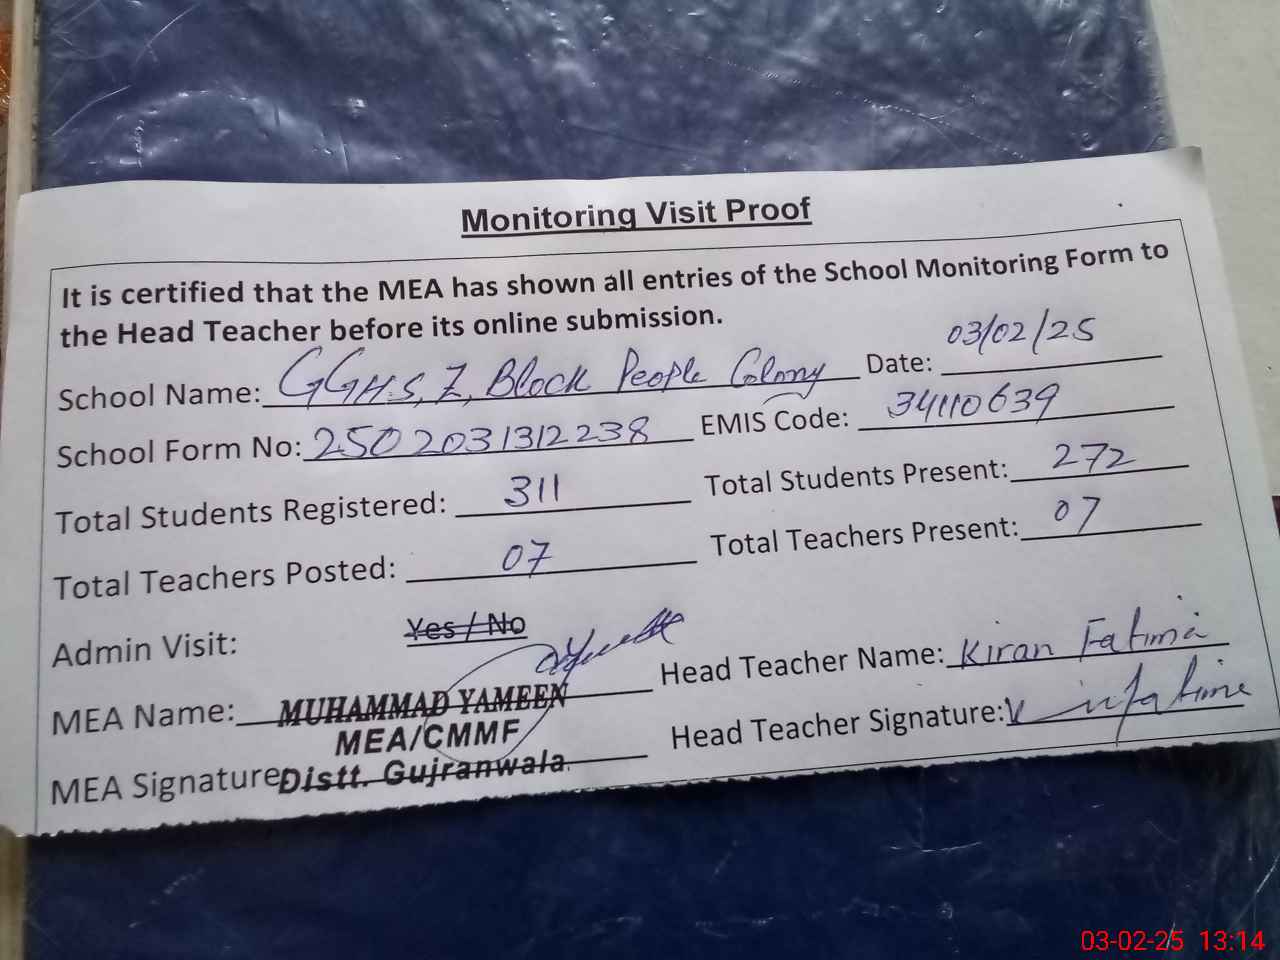 Monitoring Visit Proof
It is certified that the MEA has shown all entries of the School Monitoring Form to
the Head Teacher before its online submission.
School Name: GGHS, Z, Block People Colony Date: 03/02/25
School Form No: 2502031312238 EMIS Code: 34110639
Total Students Registered: 311 Total Students Present: 272
Total Teachers Posted: 07 Total Teachers Present: 07
Admin Visit: Yes / No
MEA Name: MUHAMMAD YAMEEN Head Teacher Name: Kiran Fatima
MEA/CMMF
MEA Signature Distt. Gujranwala Head Teacher Signature:
03-02-25 13:14